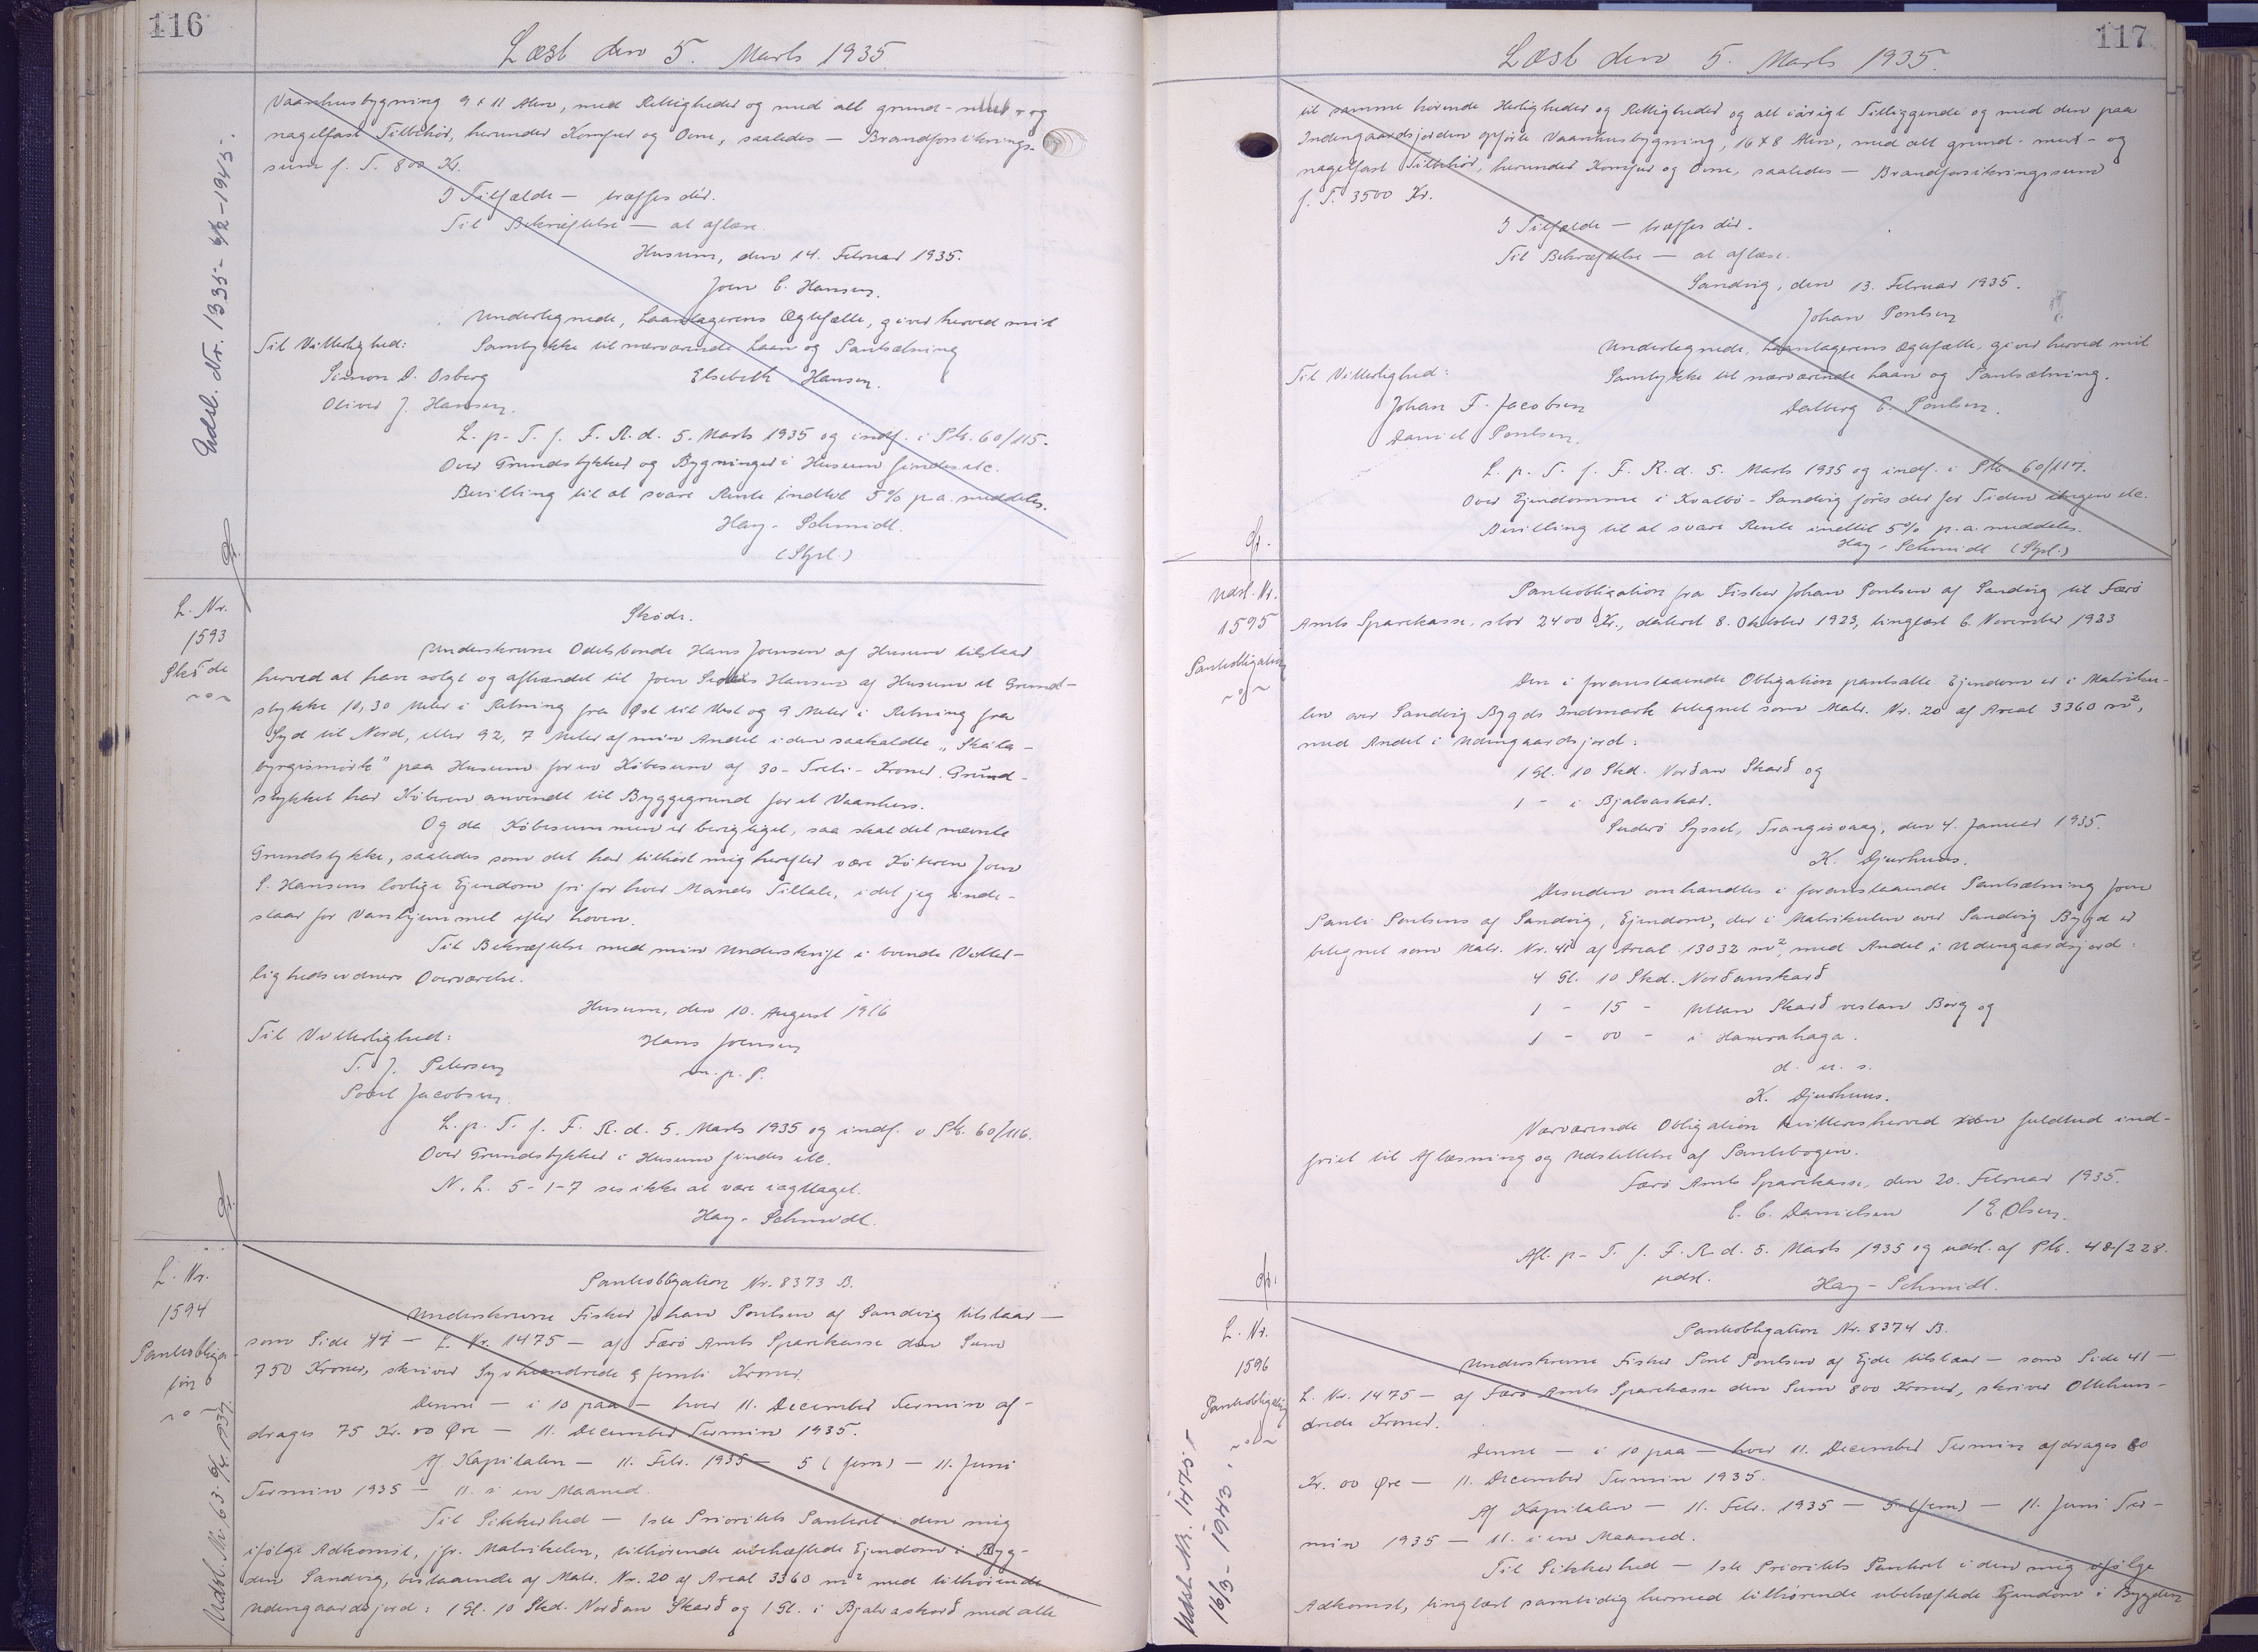 116
Læst den 5. Marts 1935
Vaanhusbygning 9 x 11 Alen, med Rettigheder og med alt grund- mur- og
nagelfast Tilbehör, herunder Komfur og Ovne, saaledes — Brandforsikrings-
sum f. T. 800 Kr.
I Tilfælde — træffes dér.
Til Bekræftelse — at aflæse.
Husum, den 14. Februar 1935.
Joen C. Hansen.
Undertegnede, Laantagerens Ægtefælle, giver herved mit
Til Vitterlighed: Samtykke til nærværende Laan og Pantsætning
Simon D. Osberg Elsebeth Hansen.
Oliver J. Hansen.
L. p. T. f. F. R. d. 5. Marts 1935 og indf. i Ptb. 60/115.
Over Grundstykker og Bygninger i Husum findes etc.
Bevilling til at svare Rente indtil 5% p.a. meddeles.
Hay-Schmidt.
(Stpl.)
Udsl. Nr. 1335 - 6/2 - 1945.
L. Nr.
1593
Sköde
Sköde.
Underskrevne Odelsbonde Hans Joensen af Husum tilstaar
herved at have solgt og afhændet til Joen Hansen af Husum et Grund-
stykke 10,30 Meter i Retning fra Øst til Vest og 9 Meter i Retning fra
Syd til Nord, eller 92,7 Meter af min Andel i den saakaldte "Skála-
byrgismörk" paa Husum for en Köbesum af 30 - Treti - Kroner. Grund-
stykket har Köberen anvendt til Byggegrund for et Vaanhus.
Og da Köbesummen er berigtiget, saa skal det nævnte
Grundstykke, saaledes som det har tilhört mig herefter være Köberen Joen
S. Hansens lovlige Ejendom fri for hver Mands Tiltale, idet jeg inde-
staar for Vanhjemmel efter Loven.
Til Bekræftelse med min Underskrift i tvende Vitter-
lighedsvidners Overværelse.
Husum, den 10. August 1916
Til Vitterlighed: Hans Joensen
T. J. Petersen m. p. P.
Poul Jacobsen.
L. p. T. f. F. R. d. 5. Marts 1935 og indf. i Ptb. 60/116.
Over Grundstykker i Husum findes etc.
N. L. 5-1-7 ses ikke at være iagttaget.
Hay-Schmidt.
L. Nr.
1594
Pantobliga-
tion
Udsl. Nr. 63. 6/4 1937.
Pantobligation Nr. 8373 B.
Underskrevne Fisker Johan Poulsen af Sandvig tilstaar —
som Side 41 — L. Nr. 1475 — af Færö Amts Sparekasse den Sum
750 Kroner, skriver Syvhundrede & femti Kroner.
Denne — i 10 paa — hver 11. December Termin af-
drages 75 Kr. 00 Øre — 11. December Termin 1935.
Af Kapitalen — 11. Febr. 1935 — 5 (fem) — 11. Juni
Termin 1935 — 11. i en Maaned.
Til Sikkerhed — 1ste Prioritets Panteret i den mig
ifölge Adkomst, jfr. Matrikelen, tilhörende ubehæftede Ejendom i Byg-
den Sandvig, bestaaende af Matr. Nr. 20 af Areal 3360 m² med tilhörende
Udengaardsjord: 1 Gl. 10 Skd. Norðan Skarð og 1 Gl. i Bjalvaskorð med alle
117
Læst den 5. Marts 1935.
til samme hörende Herligheder og Rettigheder og alt iövrigt Tilliggende og med den paa
Indengaardsjorden opförte Vaanhusbygning, 16 x 8 Alen, med alt grund- mur- og
nagelfast Tilbehör, herunder Komfur og Ovne, saaledes — Brandforsikringssum
f. T. 3500 Kr.
I Tilfælde — træffes dér.
Til Bekræftelse — at aflæse.
Sandvig, den 13. Februar 1935.
Johan Poulsen
Undertegnede, Laantagerens Ægtefælle, giver herved mit
Til Vitterlighed: Samtykke til nærværende Laan og Pantsætning.
Johan F. Jacobsen Dalberg E. Poulsen.
Daniel Poulsen.
L. p. T. f. F. R. d. 5. Marts 1935 og indf. i Ptb. 60/117.
Over Ejendomme i Kvalbö-Sandvig föres der for Tiden ingen etc.
Bevilling til at svare Rente indtil 5% p.a. meddeles.
Hay-Schmidt (Stpl.)
Udsl. Nr.
1595
Pantobligation
Pantobligation fra Fisker Johan Poulsen af Sandvig til Færö
Amts Sparekasse, stor 2400 Kr., dateret 8. Oktober 1923, tinglæst 6. November 1923
Den i foranstaaende Obligation pantsatte Ejendom er i Matriku-
len over Sandvig Bygds Indmark betegnet som Matr. Nr. 20 af Areal 3360 m²,
med Andel i Udengaardsjord:
1 Gl. 10 Skd. Norðan Skarð og
1 - i Bjalvaskar.
Suderö Syssel, Trangisvaag, den 4. Januar 1935.
K. Djurhuus.
Desuden omhandles i foranstaaende Pantsætning Joen
Pauli Poulsens af Sandvig, Ejendom, der i Matrikulen over Sandvig Bygd er
betegnet som Matr. Nr. 41 af Areal 13032 m², med Andel i Udengaardsjord:
4 Gl. 10 Skd. Norðanskarð
1 - 15 - Uttan Skarð vestan Borg og
1 - 00 - i Hamrahaga.
d. u. s.
K. Djurhuus.
Nærværende Obligation kvitteres herved som fuldtud ind-
friet til Aflæsning og Udslettelse af Pantebogen.
Færö Amts Sparekasse, den 20. Februar 1935.
C. C. Danielsen / E. Olsen.
Afl. p. T. f. F. R. d. 5. Marts 1935 og udsl. af Ptb. 48/228.
udsl. Hay-Schmidt.
L. Nr.
1596
Pantobligation
Udsl. Nr. 1475
16/3 - 1943.
Pantobligation Nr. 8374 B.
Underskrevne Fisker Poul Poulsen af Ejde tilstaar — som Side 41 —
L. Nr. 1475 — af Færö Amts Sparekasse den Sum 800 Kroner, skriver Ottehun-
drede Kroner.
Denne — i 10 paa — hver 11. December Termin afdrages 80
Kr. 00 Øre — 11. December Termin 1935.
Af Kapitalen — 11. Febr. 1935 — 5 (fem) — 11. Juni Ter-
min 1935 — 11. i en Maaned.
Til Sikkerhed — 1ste Prioritets Panteret i den mig ifölge
Adkomst, tinglæst samtidig hermed tilhörende ubehæftede Ejendom i Bygden